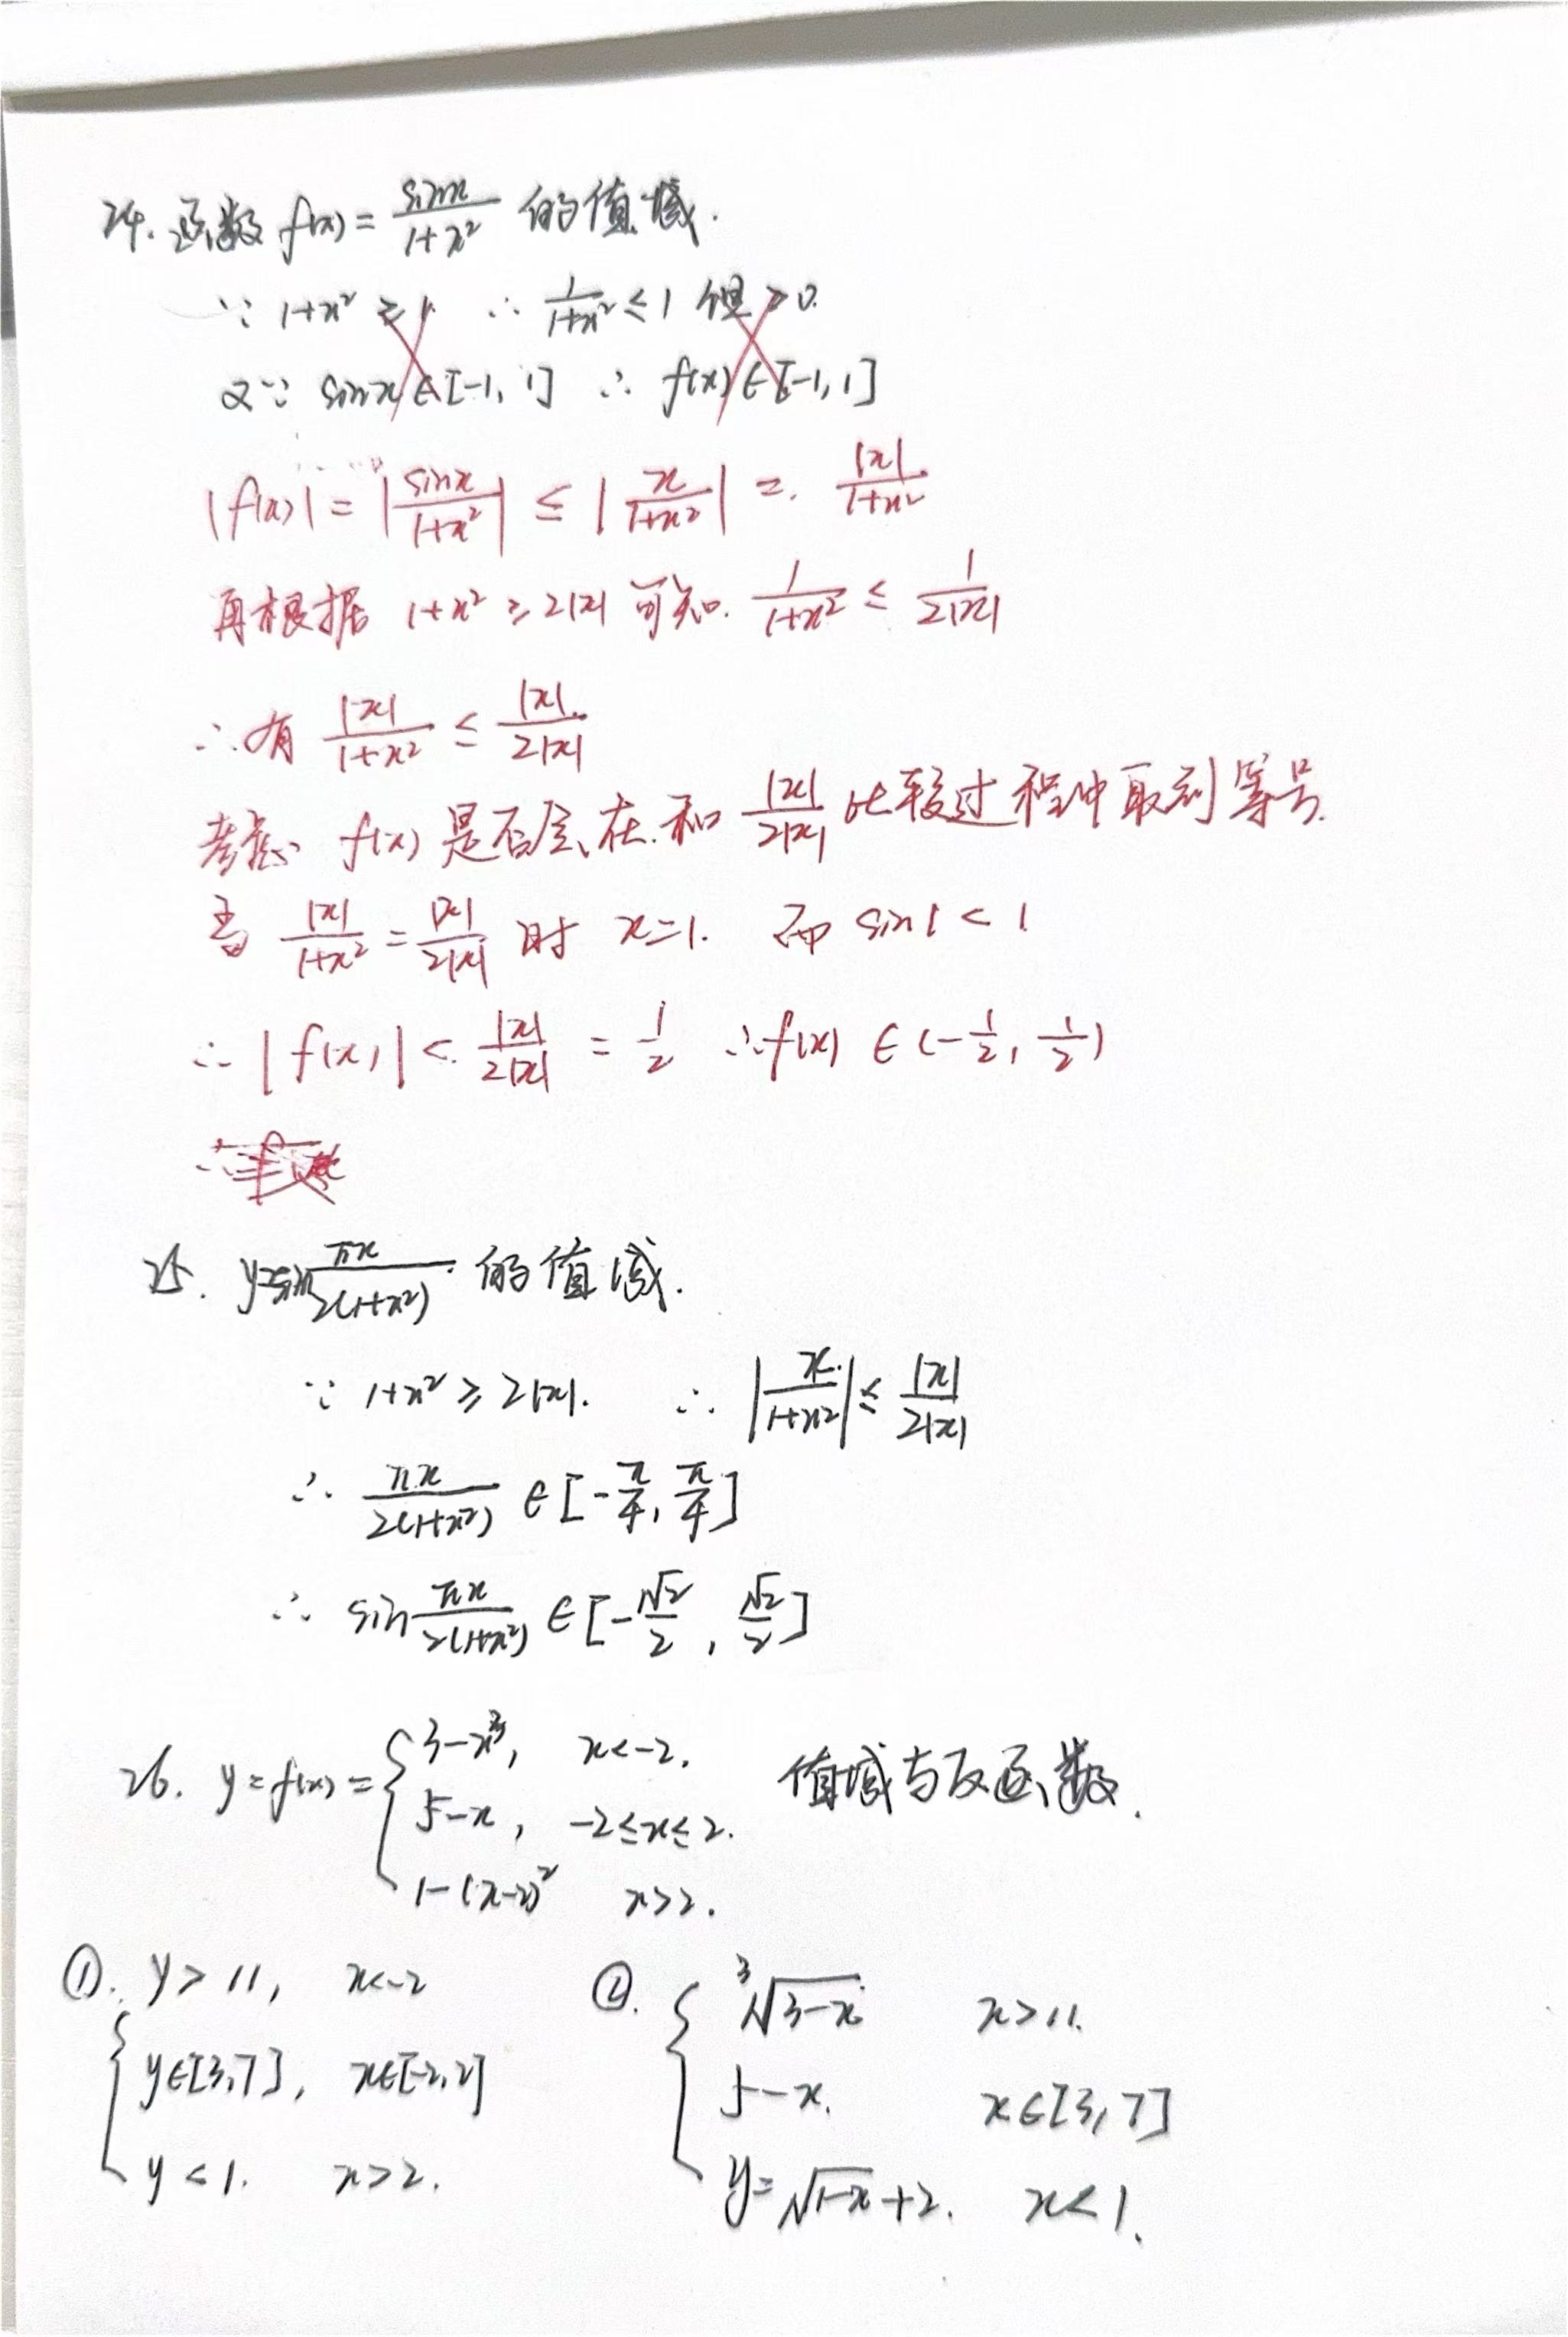 24. 函数 f(x) = sinx/(1+x²) 的值域.
∵ 1+x² ≥ 1. ∴ 1/(1+x²) ≤ 1 但 > 0.
又∵ sinx ∈ [-1, 1] ∴ f(x) ∈ [-1, 1]
|f(x)| = |sinx/(1+x²)| ≤ |x/(1+x²)| = |x|/(1+x²)
再根据 1+x² ≥ 2|x| 可知. 1/(1+x²) ≤ 1/(2|x|)
∴ 有 |x|/(1+x²) ≤ |x|/(2|x|)
考虑 f(x) 是否会在和 |x|/(2|x|) 比较过程中取到等号.
当 |x|/(1+x²) = |x|/(2|x|) 时 x=1. 而 sin1 < 1
∴ |f(x)| < |x|/(2|x|) = 1/2 ∴ f(x) ∈ (-1/2, 1/2)
25. y=sin πx/(2(1+x²)) 的值域.
∵ 1+x² ≥ 2|x|. ∴ |x/(1+x²)| ≤ |x|/(2|x|)
∴ πx/(2(1+x²)) ∈ [-π/4, π/4]
∴ sin πx/(2(1+x²)) ∈ [-√2/2, √2/2]
26. y = f(x) = { 3-x³, x<-2. 值域与反函数.
5-x, -2≤x≤2.
1-(x-2)² x>2.
①. y > 11, x<-2
y∈[3,7], x∈[-2,2]
y < 1. x>2.
②. { ³√(3-x) x>11.
5-x. x∈[3,7]
y=√(1-x)+2. x<1.